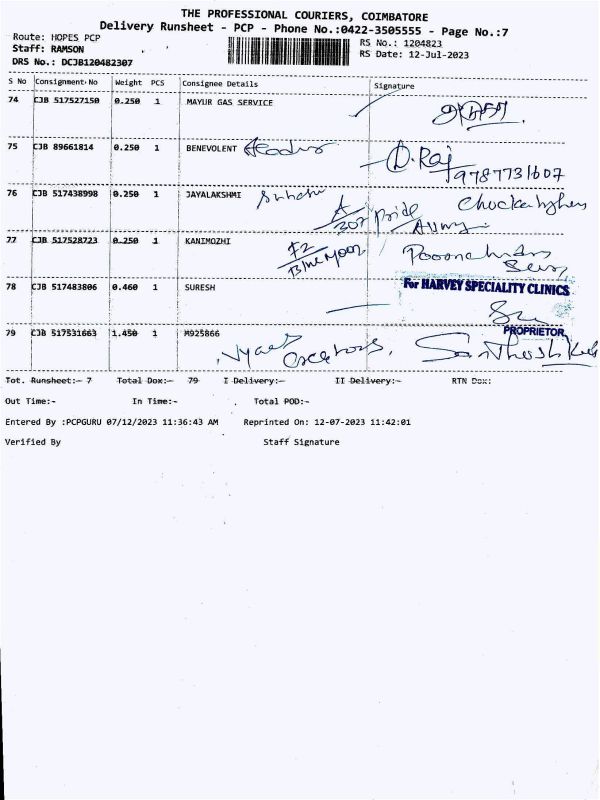 THE PROFESSIONAL COURIERS, COIMBATORE
Delivery Runsheet - PCP - Phone No.:0422-3505555 - Page No.:7
Route: HOPES PCP RS No.: 1204823
Staff: RAMSON RS Date: 12-Jul-2023
DRS No.: DCJB120482307
S No Consignment No Weight PCS Consignee Details Signature
74 CJB 517527150 0.250 1 MAYUR GAS SERVICE
75 CJB 89661814 0.250 1 BENEVOLENT D. Raj
9787731607
76 CJB 517438998 0.250 1 JAYALAKSHMI
A 307 Pride
77 CJB 517528723 0.250 1 KANIMOZHI F2
Blue Moon
78 CJB 517483806 0.460 1 SURESH For HARVEY SPECIALITY CLINICS
PROPRIETOR
79 CJB 517531663 1.450 1 M925866
Vyas Creations,
Tot. Runsheet:- 7 Total Dox:- 79 I Delivery:- II Delivery:- RTN Dox:
Out Time:- In Time:- Total POD:-
Entered By :PCPGURU 07/12/2023 11:36:43 AM Reprinted On: 12-07-2023 11:42:01
Verified By Staff Signature